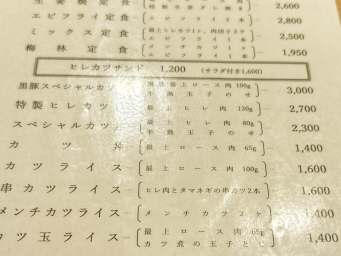 生姜焼定食 2,600
エビフライ定食 エビフライ 2,800
ミックス定食 最上ヒレカツ1ケ、 エビフライ 2,500
梅林定食 メンチカツ エビフライ 1,950
ヒレカツサンド 1,200 (サラダ付き1,600)
黒豚スペシャルカツ 最上ロース肉100g 半熟玉子のせ 3,000
特製ヒレカツ 最上ヒレ肉130g 2,700
スペシャルカツ 最上ヒレ肉80g 半熟玉子のせ 2,300
カツ丼 最上ロース肉65g 1,400
カツライス 最上ロース肉100g 1,600
串カツライス ヒレ肉とタマネギの串カツ2本 1,600
メンチカツライス メンチカツ2ケ 1,400
カツ玉ライス 最上ロース肉65g カツ煮の玉子とじ 1,400